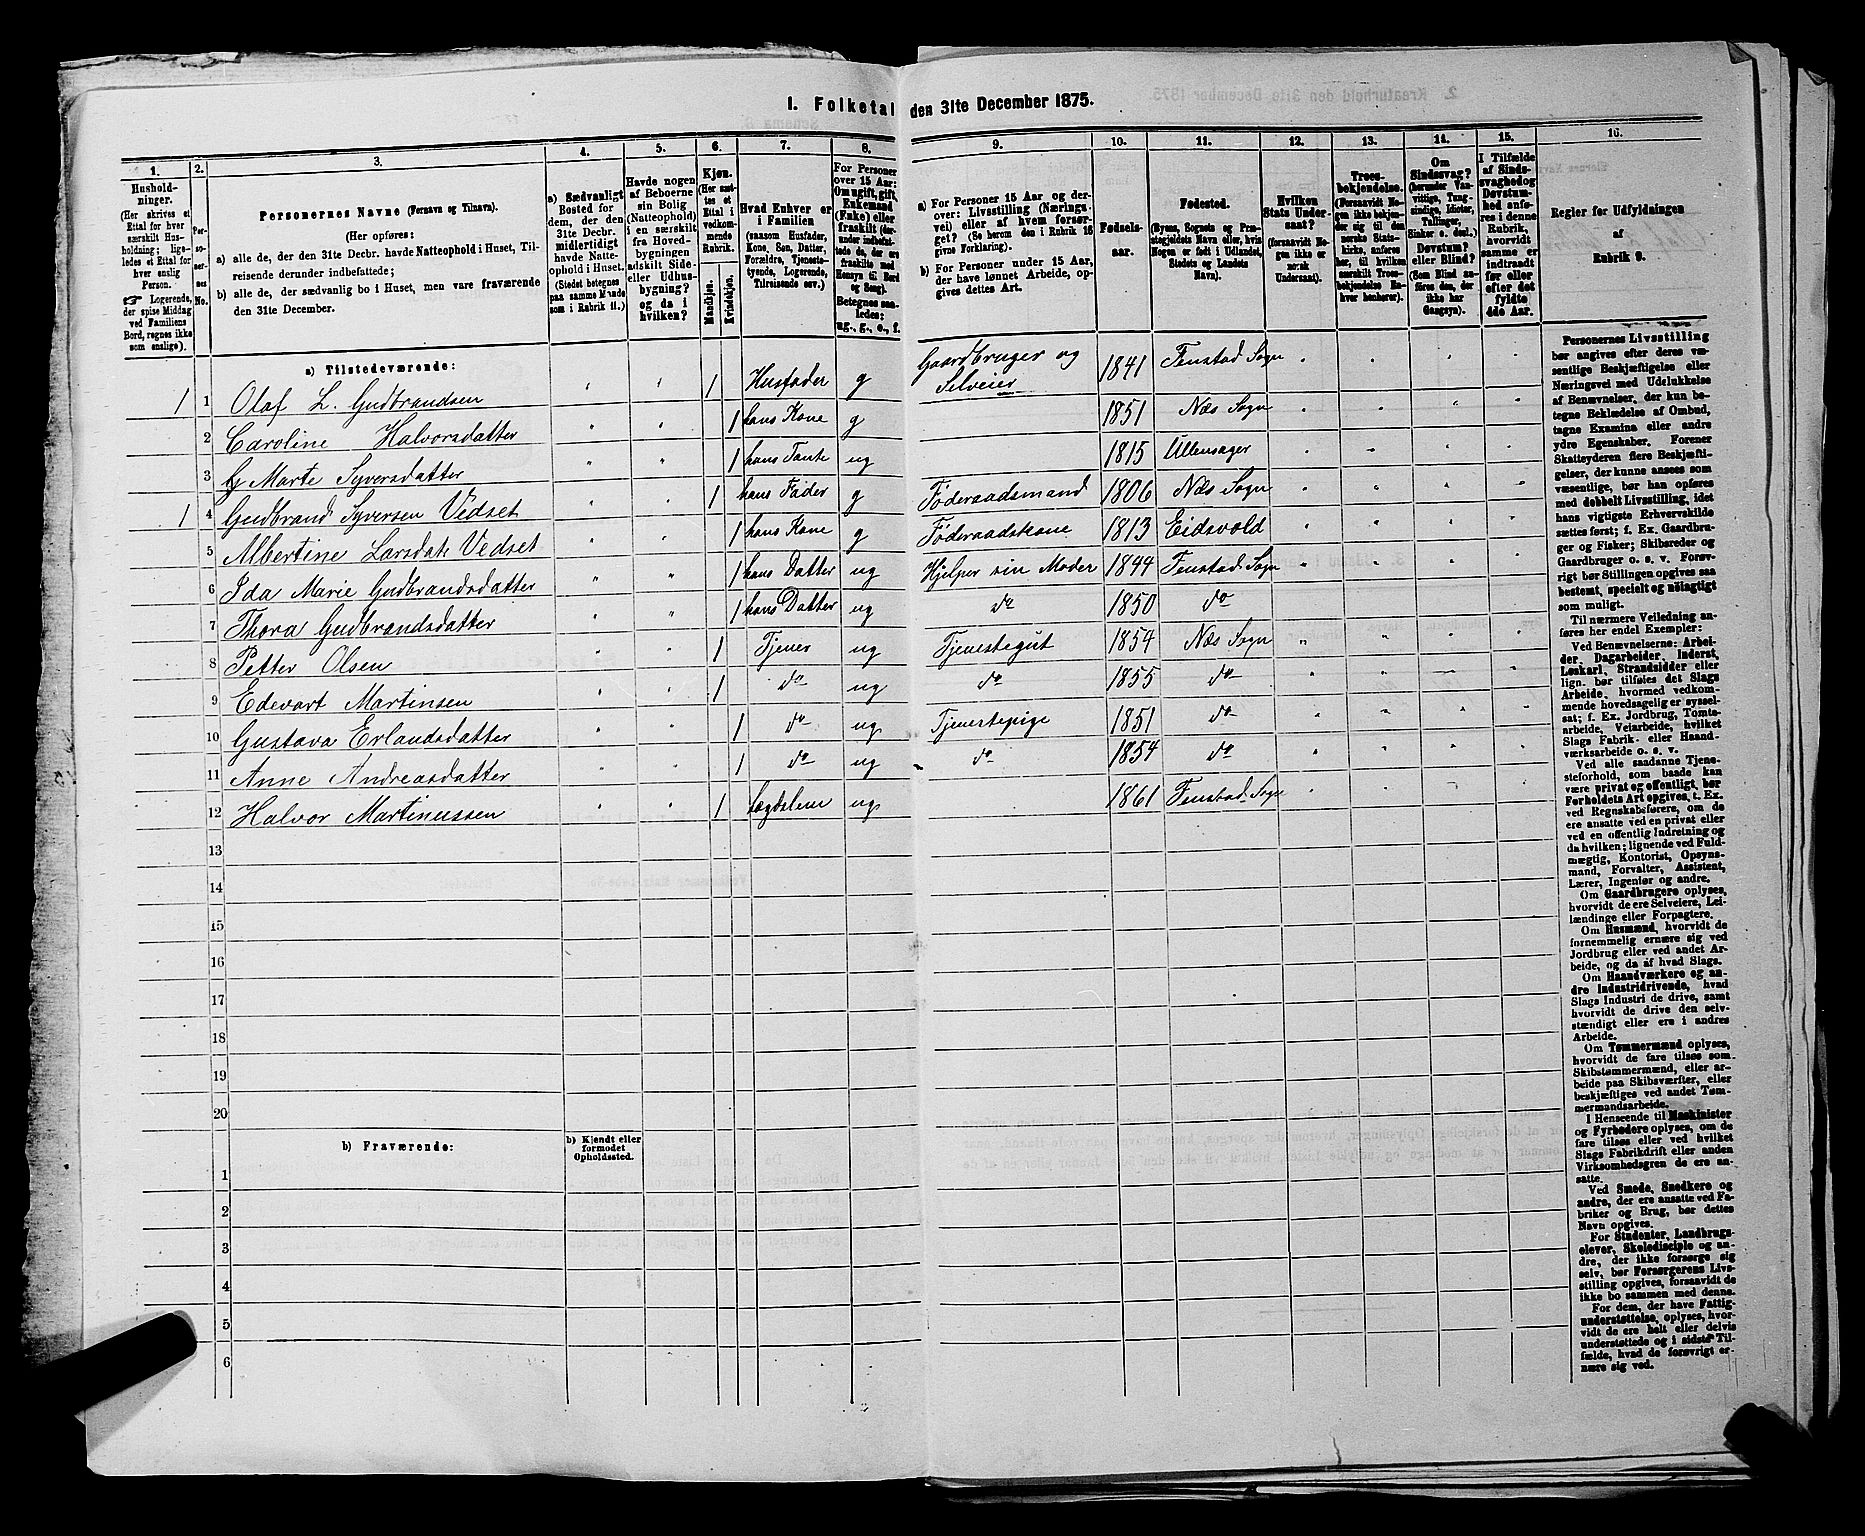 I. Folketal den 31te December 1875.
1. 2. 3. 4. 5. 6. 7. 8. 9. 10. 11. 12. 13. 14. 15. 16.
Hushold-
ninger.
(Her skrives et
Ettal for hver
særskilt Hus-
holdning; lige-
ledes et Ettal for
hver enslig
Person.
☞ Logerende,
der spise Middag
ved Familiens
Bord, regnes ikke
som enslige).
Per-
so-
ner-
nes
No.
Personernes Navne (Fornavn og Tilnavn).
(Her opføres:
a) alle de, der den 31te Decbr. havde Natteophold i Huset, Til-
reisende derunder indbefattede;
b) alle de, der sædvanlig bo i Huset, men vare fraværende
den 31te December.
a) Sædvanligt
Bosted for
dem, der den
31te Decbr.
midlertidigt
havde Natte-
ophold i Huset.
(Stedet betegnes
paa samme Maade
som i Rubrik 11.)
Havde nogen
af Beboerne
sin Bolig
(Natteophold)
i en særskilt
fra Hoved-
bygningen
adskilt Side-
eller Udhus-
bygning?
og da i
hvilken?
Kjøn.
(Her sæt-
tes et
Ettal i
vedkom-
mende
Rubrik.
Mandkjøn.
Kvindekjøn.
Hvad Enhver er
i Familien
(saasom Husfader,
Kone, Søn, Datter,
Forældre, Tjeneste-
tyende, Logerende,
Tilreisende osv.)
For Personer
over 15 Aar:
Om ugift, gift,
Enkemand
(Enke) eller
fraskilt (der-
under indbefat-
tede de, der ere
fraskilte med
Hensyn til Bord
og Seng).
Betegnes saa-
ledes:
ug., g., e., f.
a) For Personer 15 Aar og der-
over: Livsstilling (Nærings-
vei) eller af hvem forsør-
get? (Se herom den i Rubrik 16
givne Forklaring).
b) For Personer under 15 Aar,
der have lønnet Arbeide, op-
gives dettes Art.
Fødsels-
aar.
Fødested.
(Byens, Sognets og Præ-
stegjeldets Navn eller, hvis
Nogen er født i Udlandet,
Stedets og Landets
Navn).
Hvilken
Stats Under-
saat?
(forsaavidt No-
gen ikke er
norsk
Undersaat).
Troes-
bekjendelse.
(Forsaavidt No-
gen ikke bekjen-
der sig til den
norske Stats-
kirke, anføres
her, til hvilken
særskilt Troes-
bekjendelse En-
hver henhører).
Om
Sindssvag?
(herunder Van-
vittige, Tung-
sindige, Idioter,
Tullinger,
Sinker o. desl.).
Døvstum?
eller Blind?
(Som Blind an-
føres den, der
ikke har
Gangsyn).
I Tilfælde
af Sinds-
svaghed og
Døvstum-
hed anfø-
res i denne
Rubrik,
hvorvidt
samme er
indtraadt
før eller
efter det
fyldte
4de Aar.
Regler for Udfyldningen
af
Rubrik 9.
a) Tilstedeværende:
1 1 Olaf L. Gudbrandsen 1 Husfader g Gaardbruger og Selveier 1841 Fenstad Sogn
2 Caroline Halvorsdatter 1 hans Kone g 1851 Næs Sogn
3 G Marte Syversdatter 1 hans Tante ug 1815 Ullensager
1 4 Gudbrand Syversen Vedset 1 hans Fader g Føderaadsmand 1806 Næs Sogn
5 Albertine Larsdatr Vedset 1 hans Kone g Føderaadskone 1813 Eidsvold
6 Ida Marie Gudbrandsdatter 1 hans Datter ug Hjelper sin Moder 1844 Fenstad Sogn
7 Thora Gudbrandsdatter 1 hans Datter ug do 1850 do
8 Petter Olsen 1 Tjener ug Tjenestegut 1854 Næs Sogn
9 Edevart Martinsen 1 do ug do 1855 do
10 Gustava Erlandsdatter 1 do ug Tjenestepige 1851 do
11 Anne Andreasdatter 1 do ug do 1854 do
12 Halvor Martinussen 1 Lægdslem ug 1861 Fenstad Sogn
13
14
15
16
17
18
19
20
b) Fraværende:
b) Kjendt eller
formodet
Opholdssted.
1
2
3
4
5
6
Personernes Livsstilling
bør angives efter deres væ-
sentlige Beskjæftigelse eller
Næringsvei med Udelukkelse
af Benævnelser, der kun be-
tegne Beklædelse af Ombud,
tagne Examina eller andre
ydre Egenskaber. Forener
Skatteyderen flere Beskjæfti-
gelser, der kunne ansees som
væsentlige, bør han opføres
med dobbelt Livsstilling, idet
hans vigtigste Erhvervskilde
sættes først; f. Ex. Gaardbru-
ger og Fisker; Skibsreder og
Gaardbruger o. s. v. Forøv-
rigt bør Stillingen opgives saa
bestemt, specielt og nøiagtigt
som muligt.
Til nærmere Veiledning an-
føres her endel Exempler:
Ved Benævnelserne: Arbei-
der, Dagarbeider, Inderst,
Løskarl, Strandsidder eller
lign. bør tilføies det Slags
Arbeide, hvormed vedkom-
mende hovedsagelig er syssel-
sat; f. Ex. Jordbrug, Tomte-
arbeide, Veiarbeide, hvilket
Slags Fabrik- eller Haand-
værksarbeide o. s. v.
Ved alle saadanne Tjene-
steforhold, som baade kan
være privat og offentligt, bør
Forholdets Art opgives, t. Ex.
ved Regnskabsførere, om de
ere ansatte ved en privat eller
ved en offentlig Indretning og
da hvilken; lignende ved Fuld-
mægtig, Kontorist, Opsyns-
mand, Forvalter, Assistent,
Lærer, Ingeniør og andre.
Om Gaardbrugere oplyses,
hvorvidt de ere Selveiere, Lei-
lændinge eller Forpagtere.
Om Husmænd, hvorvidt de
fornemmelig ernære sig ved
Jordbrug eller ved andet Ar-
beide, og da af hvad Slags.
Om Haandværkere og an-
dre Industridrivende, hvad
Slags Industri de drive, samt
hvorvidt de drive den selv-
stændigt eller ere i andres
Arbeide.
Om Tømmermænd oplyses,
hvorvidt de fare tilsøs som
Skibstømmermænd, eller ar-
beide paa Skibsværfter, eller
beskjæftiges ved andet Tøm-
mermandsarbeide.
I Henseende til Maskinister
og Fyrbødere oplyses, om de
fare tilsøs eller ved hvilket
Slags Fabrikdrift eller anden
Virksomhedsgren de ere an-
satte.
Ved Smede, Snedkere og
andre, der ere ansatte ved Fa-
briker og Brug, bør dettes
Navn opgives.
For Studenter, Landbrugs-
elever, Skoledisciple og an-
dre, der ikke forsørge sig
selv, bør Forsørgerens Livs-
stilling opgives, forsaavidt de
ikke bo sammen med denne.
For dem, der have Fattig-
understøttelse, oplyses, hvor-
vidt de ere helt eller delvis
understøttede og i sidste Til-
fælde, hvad de forøvrigt er-
nære sig ved.